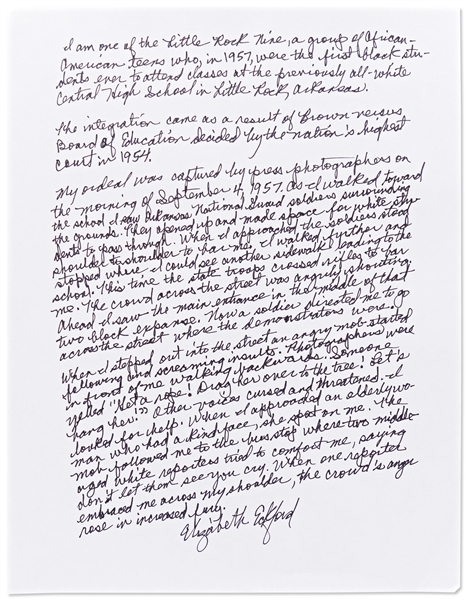 I am one of the Little Rock Nine, a group of African-
American teens who, in 1957, were the first black stu-
dents ever to attend classes at the previously all-white
Central High School in Little Rock, Arkansas.
The integration came as a result of Brown versus
Board of Education decided by the nation's highest
court in 1954.
My ordeal was captured by press photographers on
the morning of September 4, 1957. As I walked toward
the school I saw Arkansas National Guard soldiers surrounding
the grounds. They opened up and made space for white stu-
dents to pass through. When I approached the soldiers stood
shoulder to shoulder to bar me. I walked further and
stopped where I could see another sidewalk leading to the
school. This time the state troops crossed rifles to bar
me. The crowd across the street was angrily shouting.
Ahead I saw the main entrance in the middle of that
two block expanse. Now a soldier directed me to go
across the street where the demonstrators were.
When I stepped out into the street an angry mob started
following and screaming insults. Photographers were
in front of me walking backwards. Someone
yelled "Get a rope! Drag her over to the tree! Let's
hang her!" Other voices cursed and threatened. I
looked for help. When I approached an elderly wo-
man who had a kind face, she spat on me. The
mob followed me to the bus stop where two middle-
aged white reporters tried to comfort me, saying
don't let them see you cry. When one reporter
embraced me across my shoulder, the crowd's anger
rose in increased fury.
Elizabeth Eckford